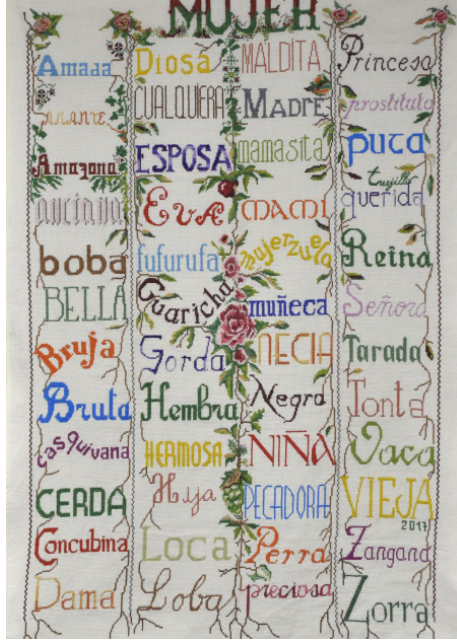 MUJER
Amada
amante
Amazona
anciana
boba
BELLA
Bruja
Bruta
Casquivana
CERDA
Concubina
Dama
Diosa
CUALQUIERA
ESPOSA
EVA
fufurufa
Guaricha
Gorda
Hembra
HERMOSA
Hija
Loca
Loba
MALDITA
MADRE
mamasita
MAMI
mujerzuela
muñeca
NECIA
Negra
NIÑA
PECADORA
Perra
preciosa
Princesa
prostituta
puta
trujillo
querida
Reina
Señora
Tarada
Tonta
Vaca
VIEJA
2017
Zangana
Zorra